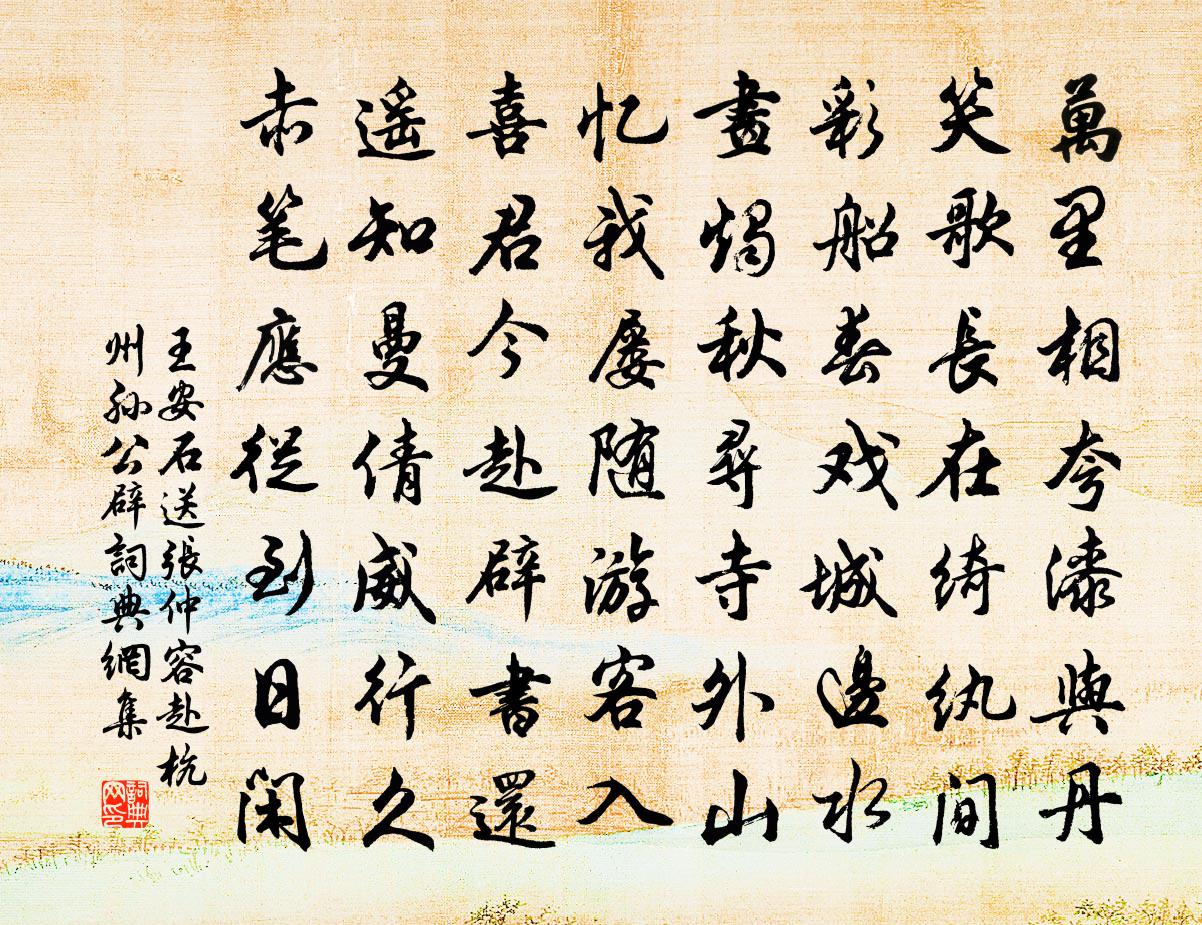 萬里相夸漆與丹
笑歌長在綺紈間
彩船春戏城邊水
畫燭秋尋寺外山
忆我屢随游客入
喜君今赴辟書還
遥知曼倩威行久
赤笔應從到日閑
王安石送張仲容赴杭
州孙公辟詞典網集
詞典网印